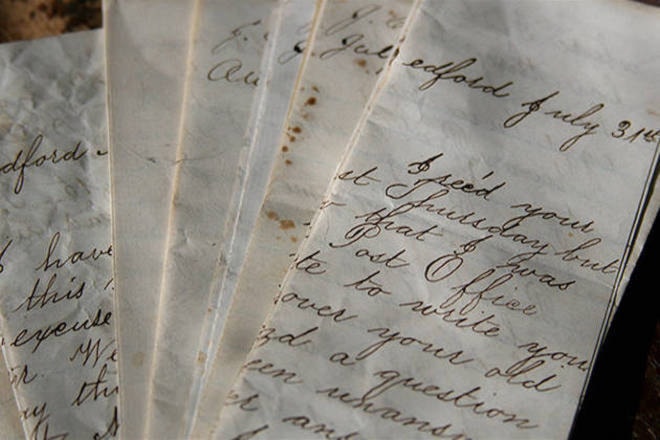 dford
have
this
excuse
r. We
y th
J.
Au
J.
Jul
edford July 31st
I rec'd your
st Thursday but
that I was
Post Office
te to write you
over your old
nd a question
een unans
er an